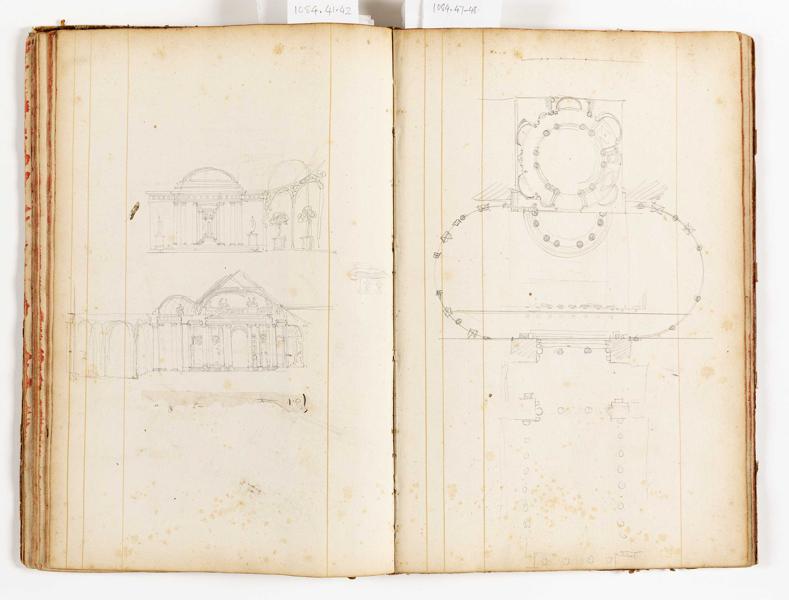 1084.41-42
1084.47-48